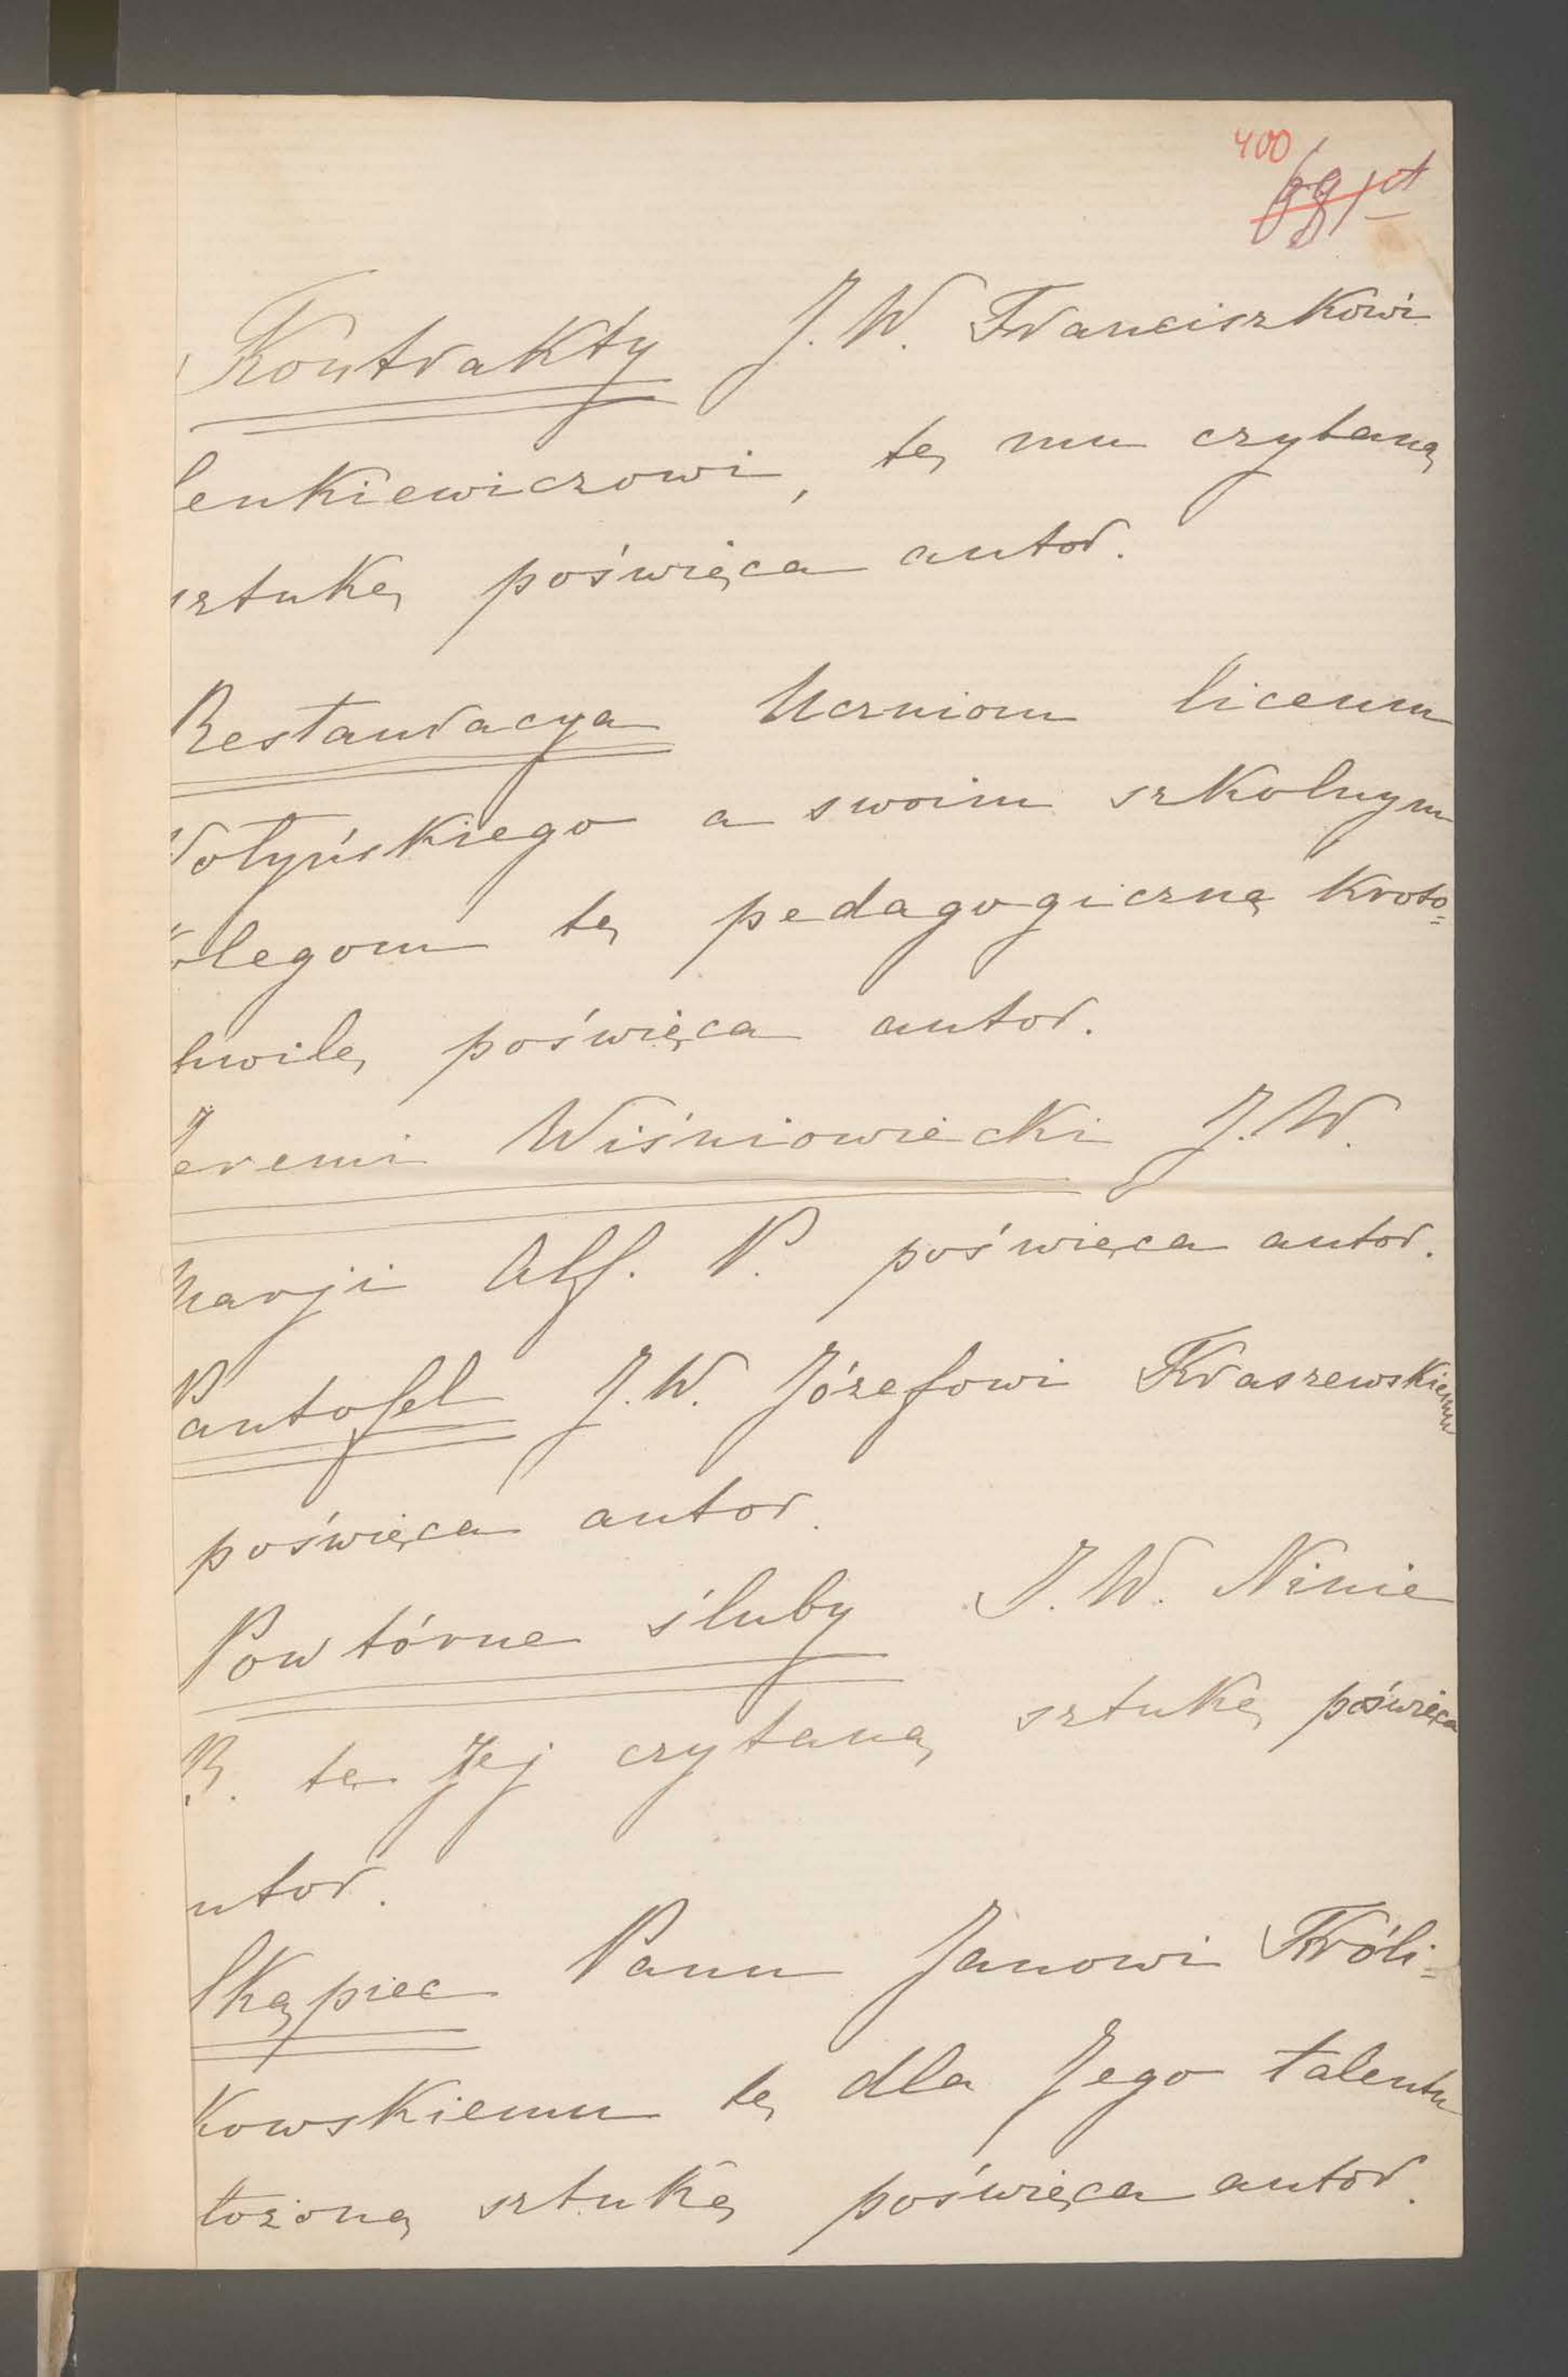 400
Kontrakty J. W. Franciszkowi
lenkiewiczowi, tę mu czytaną
sztukę poświęca autor.
Restauracya Uczniom liceum
Wołyńskiego a swoim szkolnym
kolegom tę pedagogiczną kroto=
hwilę poświęca autor.
Jeremi Wiśniowiecki J. W.
Marji Alf. P. poświęca autor.
Pantofel J. W. Józefowi Kraszewskiemu
poświęca autor.
Powtórne śluby J. W. Ninie
B. tę Jej czytaną sztukę poświęca
utor.
Skąpiec Panu Janowi Króli=
kowskiemu tę dla Jego talentu
łożoną sztukę poświęca autor.